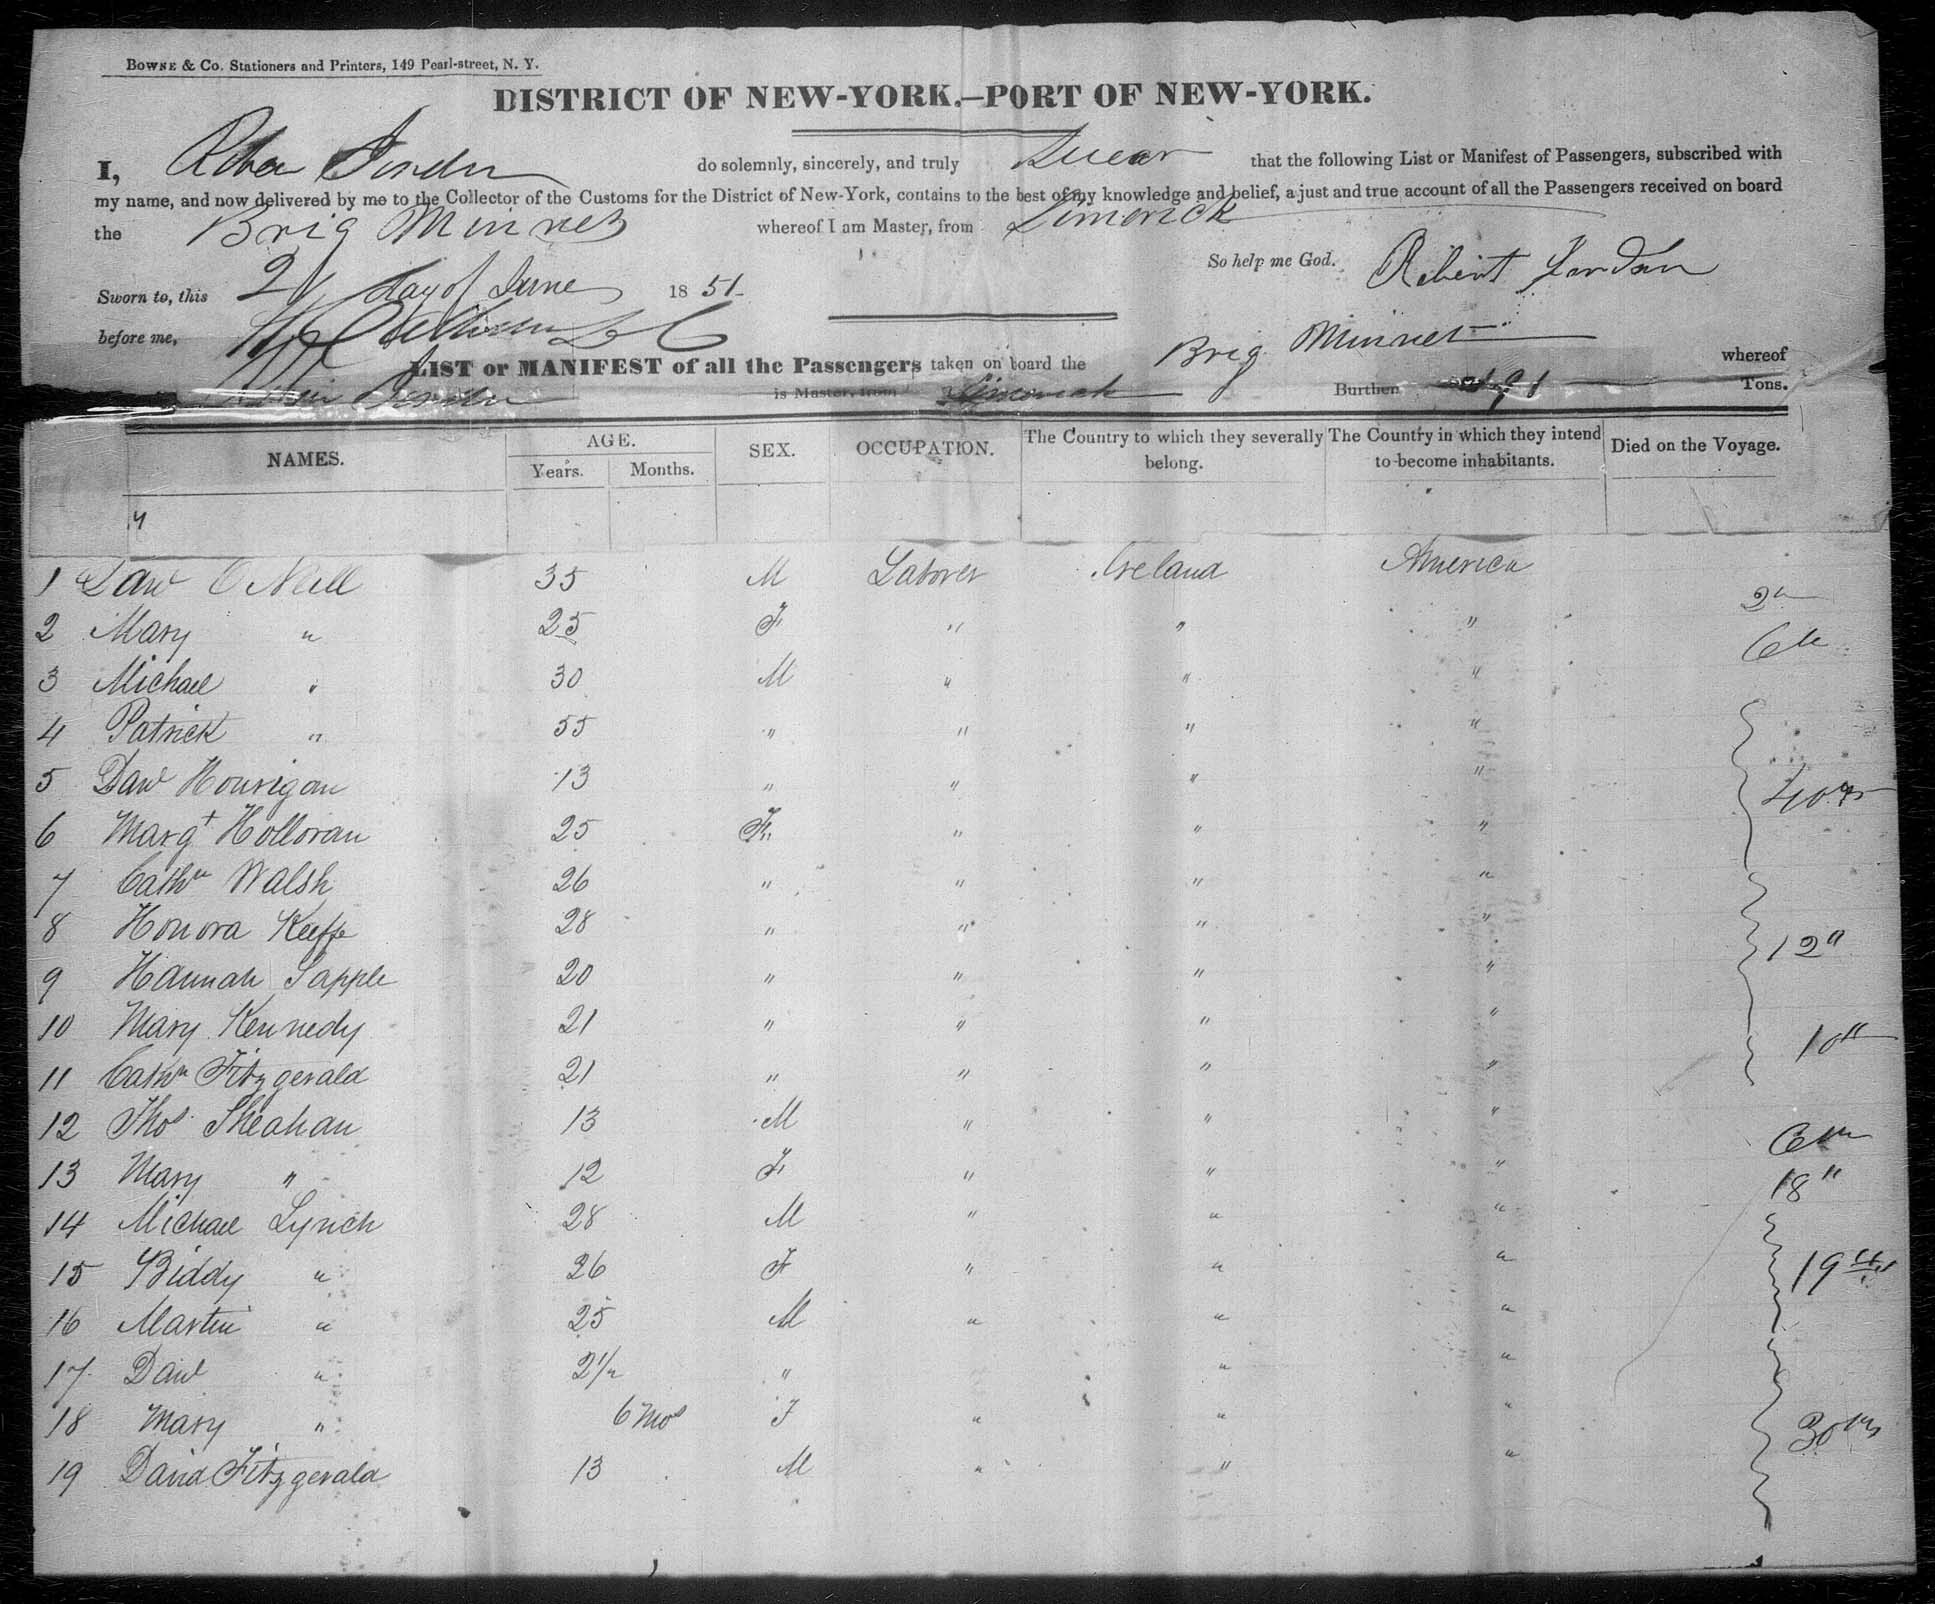 BOWNE & CO. Stationers and Printers, 149 Pearl-street, N. Y.
DISTRICT OF NEW-YORK.—PORT OF NEW-YORK.
I, Robert Jordan do solemnly, sincerely, and truly Swear that the following List or Manifest of Passengers, subscribed with
my name, and now delivered by me to the Collector of the Customs for the District of New-York, contains to the best of my knowledge and belief, a just and true account of all the Passengers received on board
the Brig Minnet whereof I am Master, from Limerick
So help me God. Robert Jordan
Sworn to, this 21 day of June 1851
before me,
LIST or MANIFEST of all the Passengers taken on board the Brig Minnet whereof
Robert Jordan is Master, from Limerick Burthen Tons.
NAMES. AGE. SEX. OCCUPATION. The Country to which they severally belong. The Country in which they intend to become inhabitants. Died on the Voyage.
Years. Months.
4
1 Dav O Neill 35 M Laborer Ireland America
2 Mary " 25 F " " "
3 Michael " 30 M " " "
4 Patrick " 55 " " " "
5 Dav Hourigan 13 " " " "
6 Margt Holloran 25 F " " "
7 Cathn Walsh 26 " " " "
8 Honora Keeffe 28 " " " "
9 Hannah Sapple 20 " " " "
10 Mary Kennedy 21 " " " "
11 Cathn Fitzgerald 21 " " " "
12 Thos Sheahan 13 M " " "
13 Mary " 12 F " " "
14 Michael Lynch 28 M " " "
15 Biddy " 26 F " " "
16 Martin " 25 M " " "
17 Davd " 2 1/2 " " "
18 Mary " 6 Mos F " " "
19 David Fitzgerald 13 M " " "
12"
10"
18"